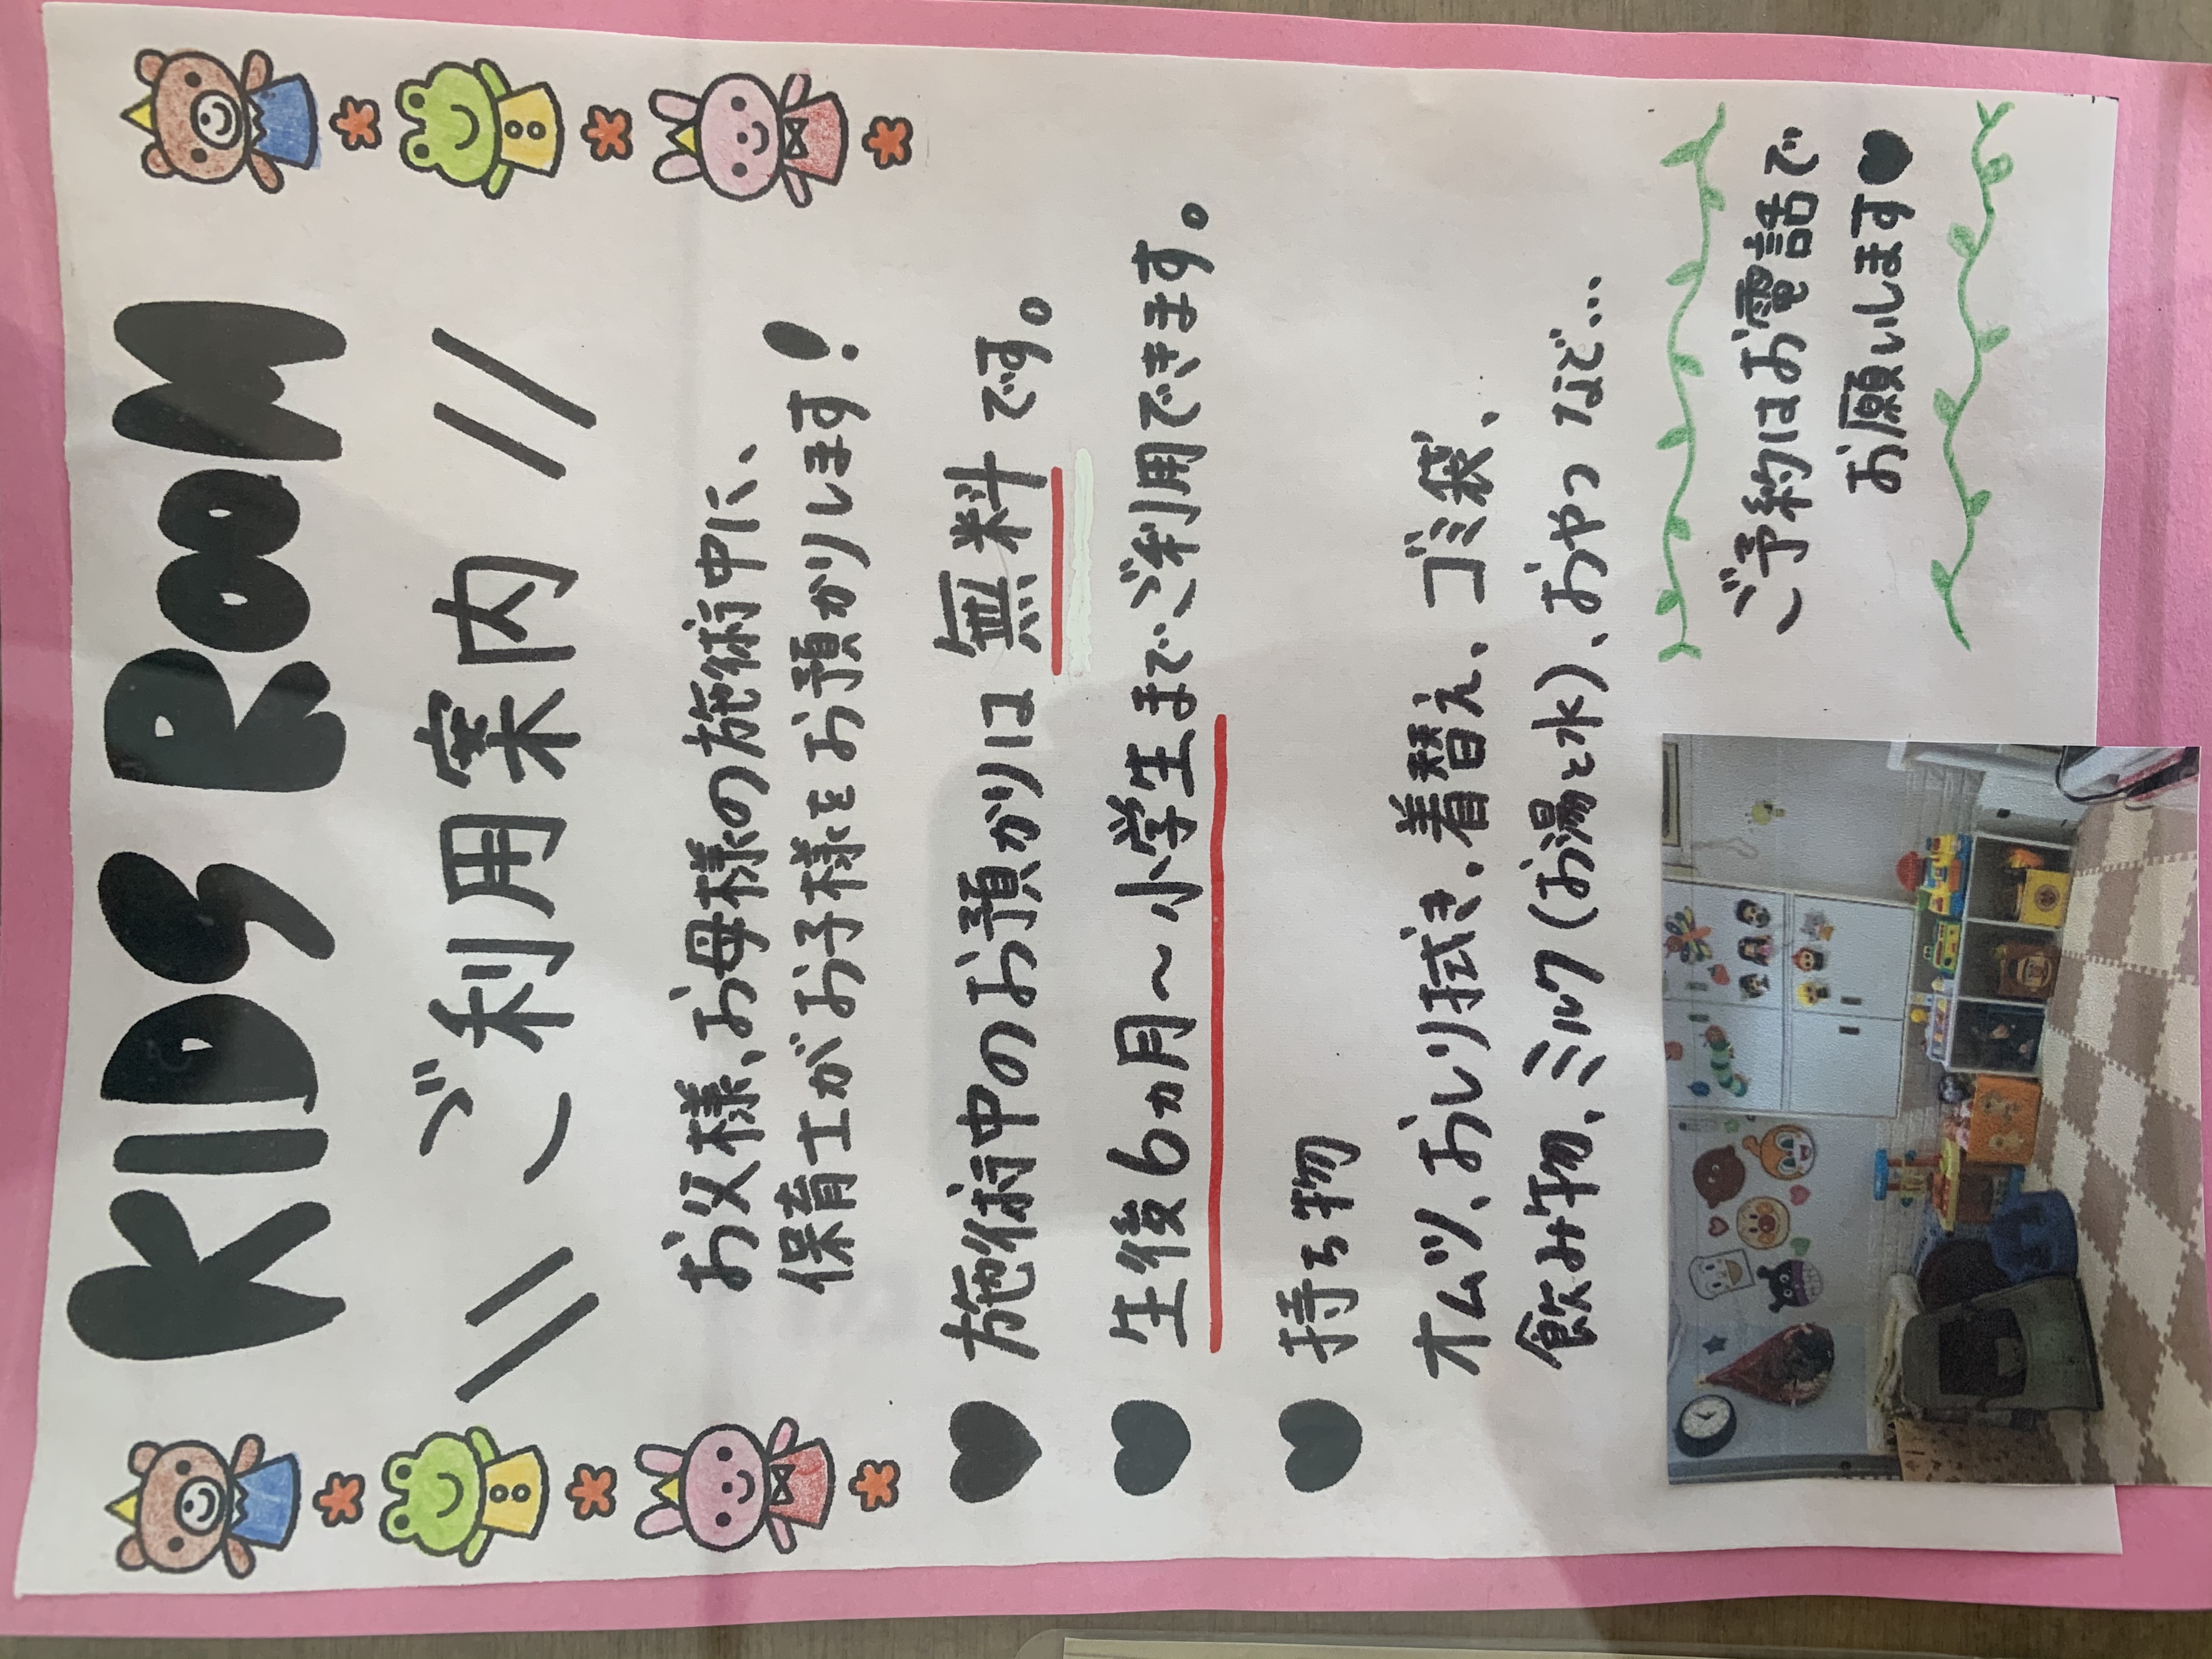 KIDS ROOM
ご利用案内
お父様、お母様の施術中に、
保育士がお子様をお預かりします!
施術中のお預かりは 無料 です。
生後6ヵ月〜小学生までご利用できます。
持ち物
オムツ、おしり拭き、着替え、ゴミ袋、
飲み物、ミルク(お湯と水)、おやつ など…
ご予約はお電話で
お願いします♥